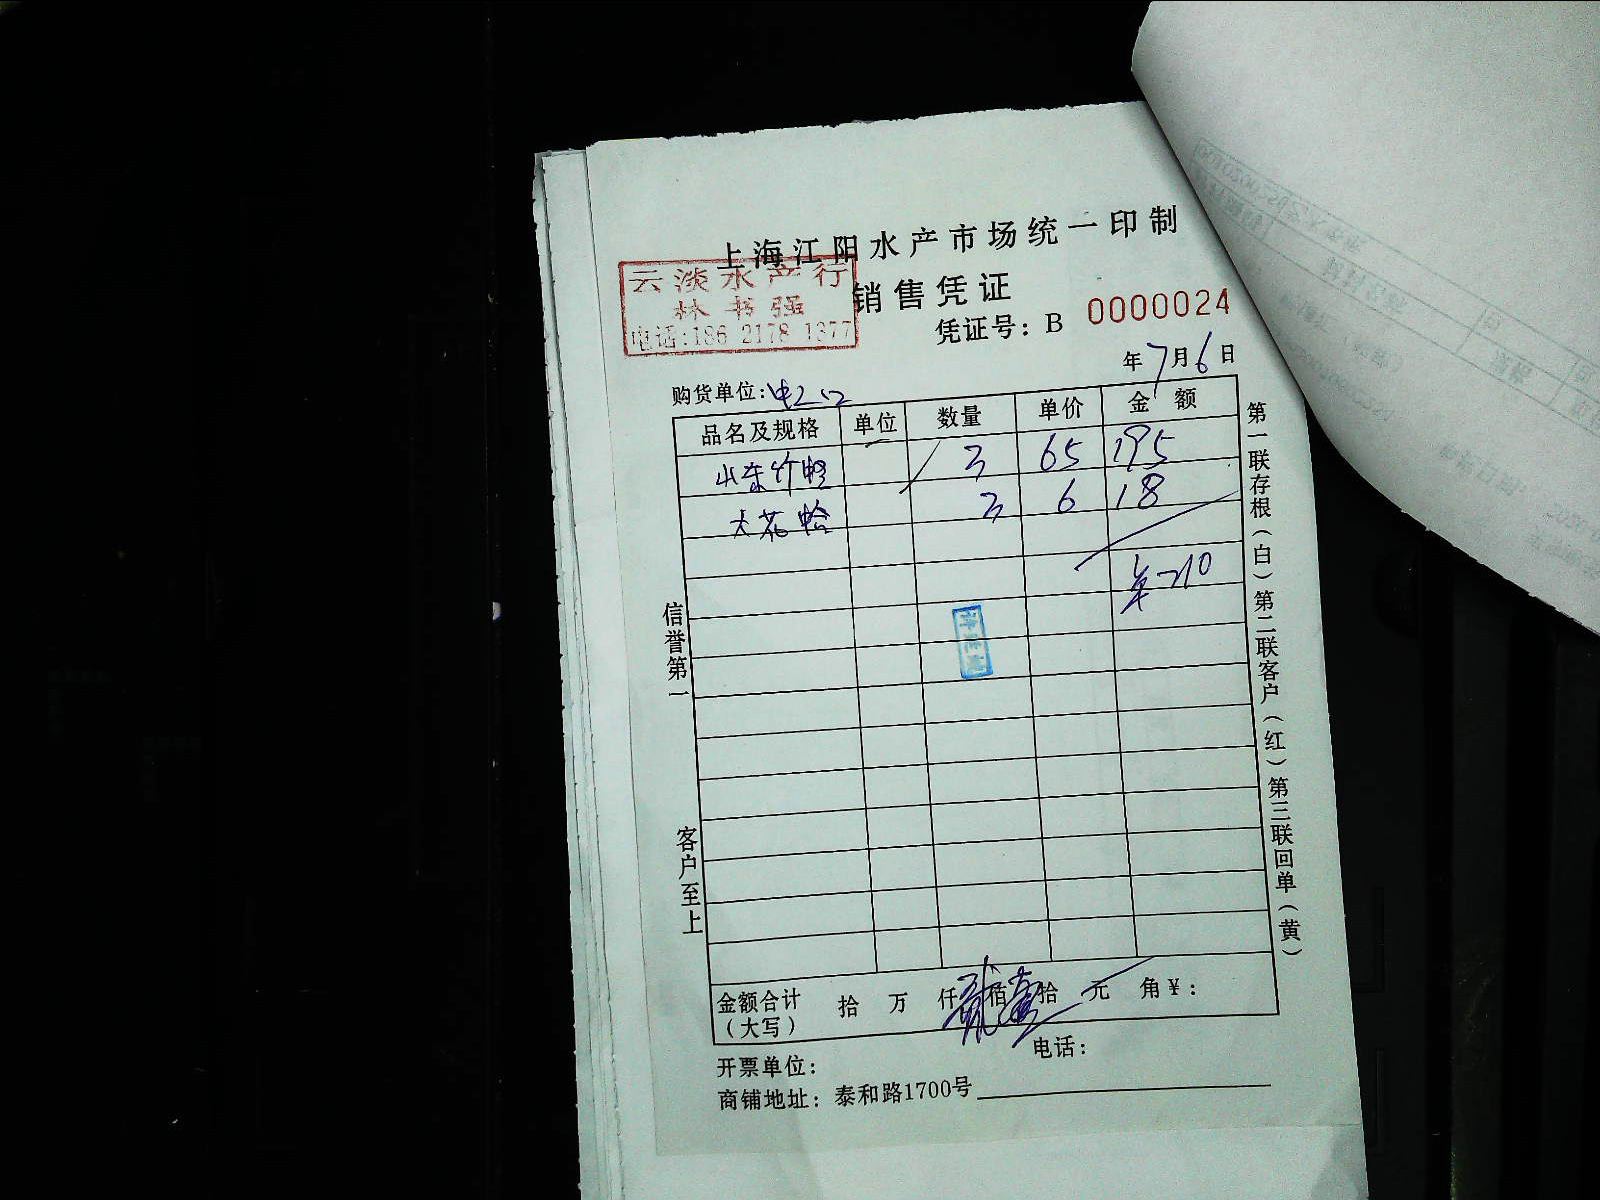 上海江阳水产市场统一印制
云淡水产行
林书强
电话:186 2178 1377
销售凭证
凭证号：B 0000024
年7月6日
购货单位:
品名及规格 单位 数量 单价 金额
山东竹蛏 3 65 195
大花蛤 3 6 18
210
信誉第一
客户至上
第一联存根（白）第二联客户（红）第三联回单（黄）
金额合计 拾 万 仟贰佰壹拾 元 角￥：
（大写）
开票单位： 电话：
商铺地址：泰和路1700号